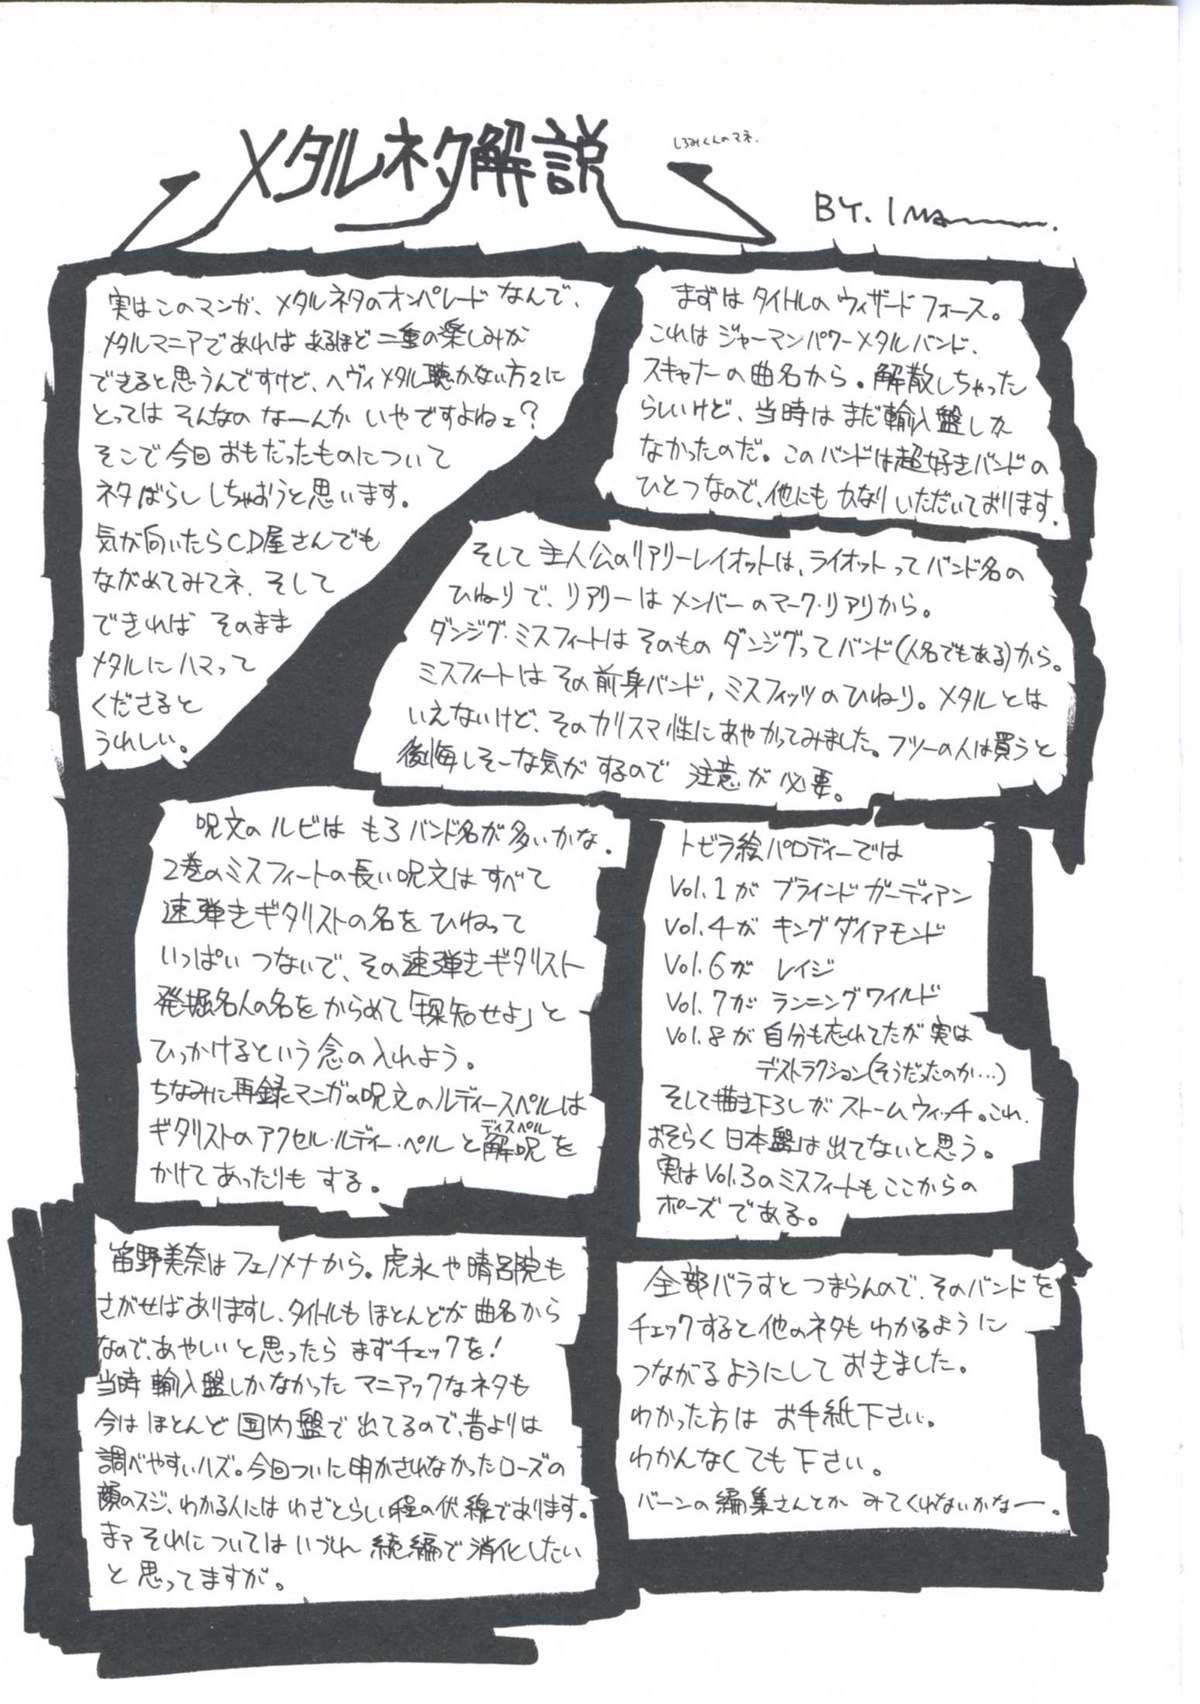 メタルネタ解説
しろみくんのマネ.
BY. I
実はこのマンガ、メタルネタのオンパレードなんで、
メタルマニアであればあるほど二重の楽しみが
できると思うんですけど、ヘヴィメタル聴かない方々に
とってはそんなの なーんか いやですよねェ?
そこで今回おもだったものについて
ネタばらししちゃおうと思います。
気が向いたらCD屋さんでも
ながめてみてネ、そして
できれば そのまま
メタルにハマって
くださると
うれしい。
まずはタイトルのウィザードフォース。
これはジャーマンパワーメタルバンド、
スキャナーの曲名から。解散しちゃった
らしいけど、当時はまだ輸入盤しか
なかったのだ。このバンドは超好きバンドの
ひとつなので、他にもかなりいただいております。
そして主人公のリアリーレイオットは、ライオットってバンド名の
ひねりで、リアリーはメンバーのマーク・リアリから。
ダンジグ・ミスフィートはそのもの ダンジグってバンド(人名でもある)から。
ミスフィートはその前身バンド,ミスフィッツのひねり。メタルとは
いえないけど、そのカリスマ性にあやかってみました。フツーの人は買うと
後悔しそーな気がするので 注意が必要。
呪文のルビは もろバンド名が多いかな.
2巻のミスフィートの長い呪文はすべて
速弾きギタリストの名をひねって
いっぱい つないで、その速弾きギタリスト
発掘名人の名をからめて「探知せよ」と
ひっかけるという念の入れよう。
ちなみに再録マンガの呪文のルディースペルは
ギタリストのアクセル・ルディー・ペルと解呪を
ディスペル
かけてあったりもする。
トビラ絵パロディーでは
Vol.1が ブラインドガーディアン
Vol.4が キングダイアモンド
Vol.6が レイジ
Vol.7が ランニングワイルド
Vol.8が 自分も忘れてたが実は
デストラクション(そうだったのか…)
そして描き下ろしがストームウィッチ。これ、
おそらく日本盤は出てないと思う。
実はVol.3のミスフィートもここからの
ポーズである。
笛野美奈はフェノメナから。虎永や晴呂院も
さがせばありますし、タイトルもほとんどが曲名から
なので、あやしいと思ったらまずチェックを!
当時輸入盤しかなかったマニアックなネタも
今はほとんど国内盤で出てるので、昔よりは
調べやすいハズ。今回ついに明かされなかったローズの
顔のスジ、わかる人にはわざとらしい程の伏線であります。
まァそれについてはいづれ続編で消化したい
と思ってますが。
全部バラすとつまらんので、そのバンドを
チェックすると他のネタもわかるように
つながるようにしておきました。
わかった方は お手紙下さい。
わかんなくても下さい。
バーンの編集さんとか みてくれないかなー。